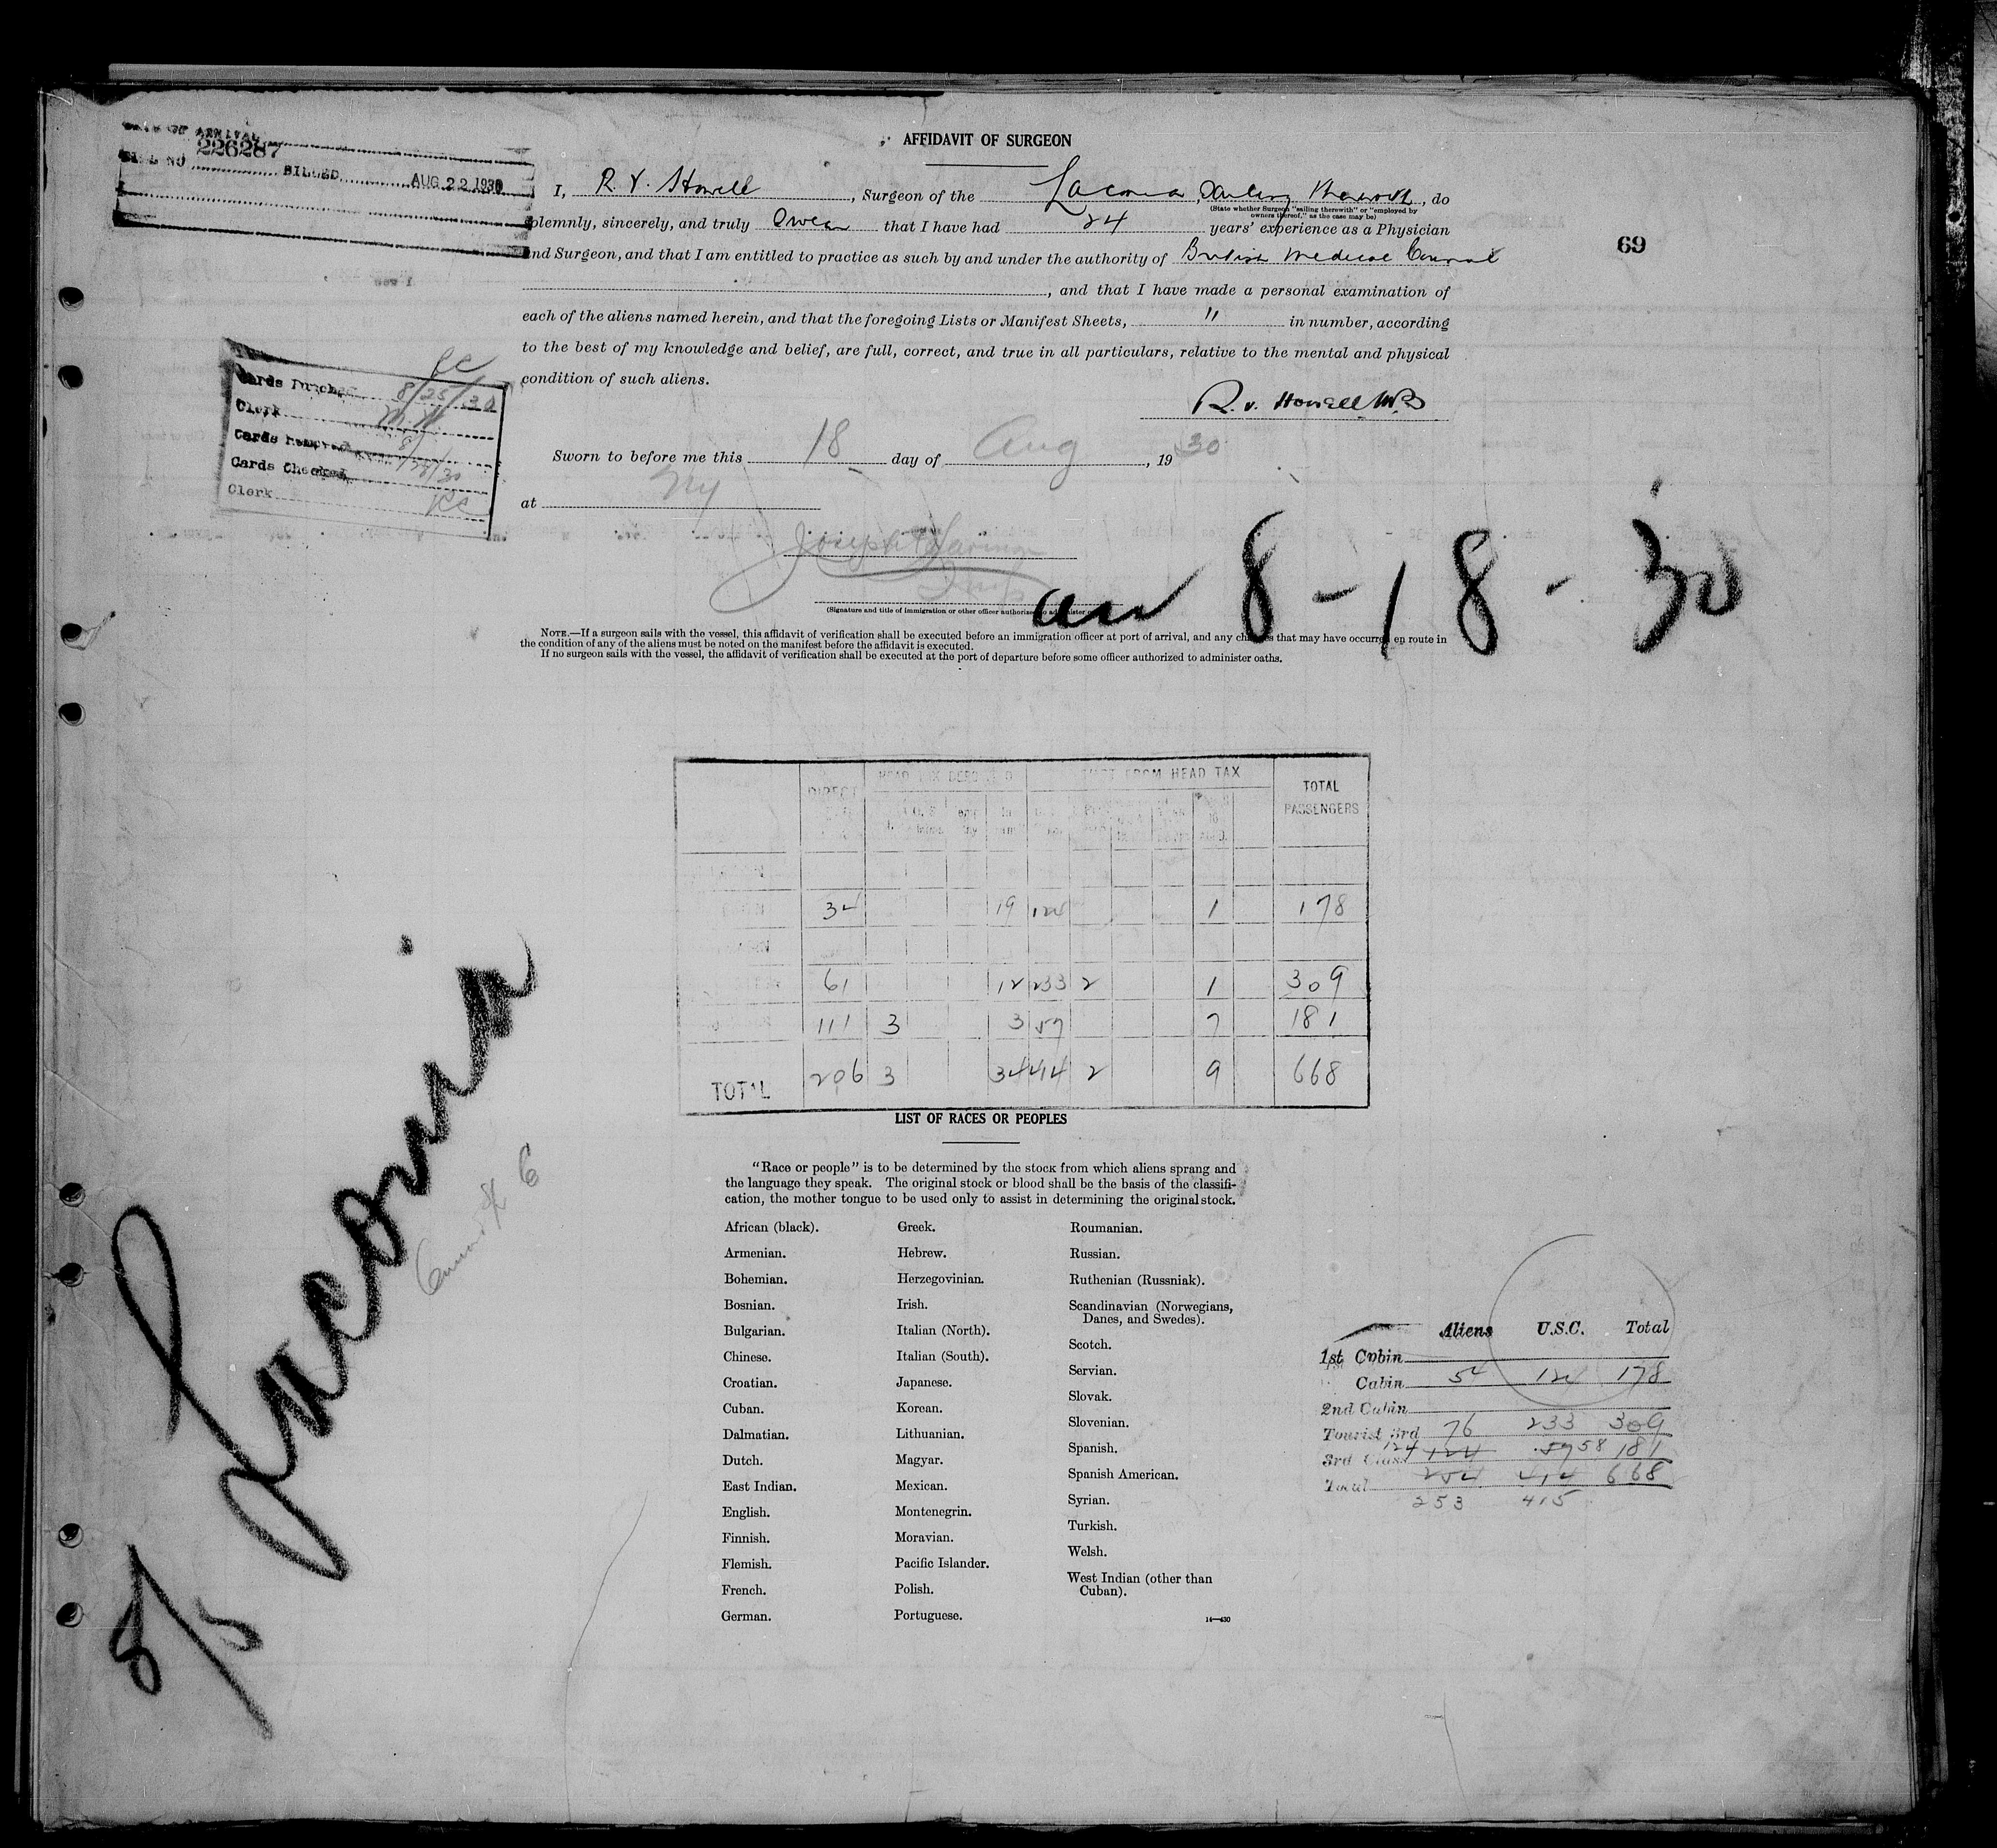 OF ARRIVAL
226287
BILL NO
BILLED AUG 22 1930
AFFIDAVIT OF SURGEON
I, R. V. Howell, Surgeon of the Laconia, Sailing therewith, do
(State whether Surgeon "sailing therewith" or "employed by
owners thereof," as the case may be)
solemnly, sincerely, and truly swear that I have had 24 years' experience as a Physician
and Surgeon, and that I am entitled to practice as such by and under the authority of British Medical Council
69
, and that I have made a personal examination of
each of the aliens named herein, and that the foregoing Lists or Manifest Sheets, " in number, according
to the best of my knowledge and belief, are full, correct, and true in all particulars, relative to the mental and physical
condition of such aliens.
R. V. Howell M.B
Cards Punched 8/25/30
Clerk M.H.
Cards
Cards Checked
Clerk
Sworn to before me this 18 day of Aug, 1930
at NY
Joseph
(Signature and title of immigration or other officer authorized to administer
arr 8-18-30
NOTE.—If a surgeon sails with the vessel, this affidavit of verification shall be executed before an immigration officer at port of arrival, and any changes that may have occurred en route in
the condition of any of the aliens must be noted on the manifest before the affidavit is executed.
If no surgeon sails with the vessel, the affidavit of verification shall be executed at the port of departure before some officer authorized to administer oaths.
DIRECT HEAD TAX FROM HEAD TAX TOTAL PASSENGERS
34 19 124 1 178
61 12 233 2 1 309
111 3 3 57 7 181
TOTAL 206 3 34 414 2 9 668
S/S Laconia
6
LIST OF RACES OR PEOPLES
"Race or people" is to be determined by the stock from which aliens sprang and
the language they speak. The original stock or blood shall be the basis of the classifi-
cation, the mother tongue to be used only to assist in determining the original stock.
African (black).
Armenian.
Bohemian.
Bosnian.
Bulgarian.
Chinese.
Croatian.
Cuban.
Dalmatian.
Dutch.
East Indian.
English.
Finnish.
Flemish.
French.
German.
Greek.
Hebrew.
Herzegovinian.
Irish.
Italian (North).
Italian (South).
Japanese.
Korean.
Lithuanian.
Magyar.
Mexican.
Montenegrin.
Moravian.
Pacific Islander.
Polish.
Portuguese.
Roumanian.
Russian.
Ruthenian (Russniak).
Scandinavian (Norwegians,
Danes, and Swedes).
Scotch.
Servian.
Slovak.
Slovenian.
Spanish.
Spanish American.
Syrian.
Turkish.
Welsh.
West Indian (other than
Cuban).
14—430
Aliens U.S.C. Total
1st Cabin
Cabin 54 124 178
2nd Cabin
Tourist 3rd 76 233 309
3rd Class 124 124 57 58 181
Total 254 414 668
253 415